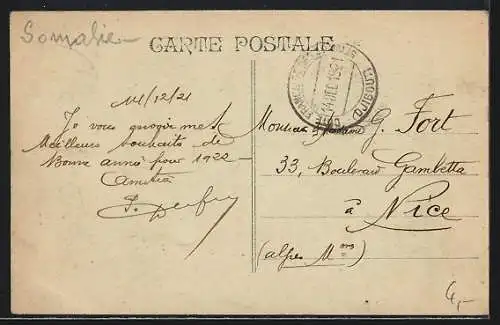 Somalie
CARTE POSTALE
COTE FRANÇAISE DES SOMALIS
14 DEC 1921
DJIBOUTI
14/12/21
Je vous envoie mes
Meilleurs souhaits de
Bonne année pour 1922 -
Amitié
Monsieur G. Fort
33, Boulevard Gambetta
à Nice
(alpes Mmes)
4,-